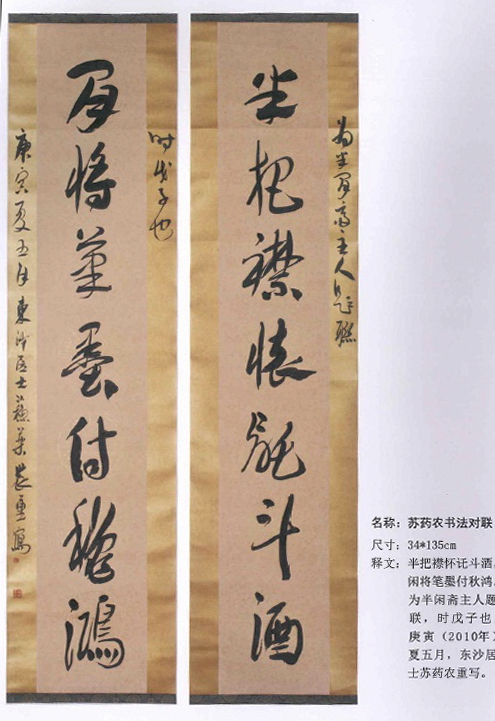 為半閒齋主人題聯
半把襟懷託斗酒
時戊子也
閒將筆墨付秋鴻
庚寅夏五月東沙居士蘇藥農重寫
名称：苏药农书法对联
尺寸：34*135cm
释文：半把襟怀讬斗酒，
闲将笔墨付秋鸿。
为半闲斋主人题
联，时戊子也
庚寅（2010年）
夏五月，东沙居
士苏药农重写。